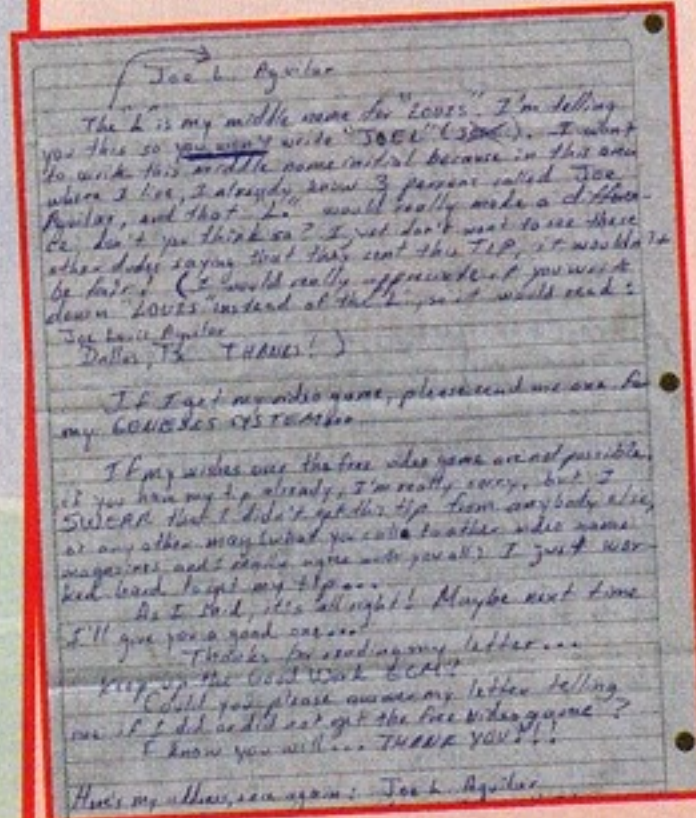 Joe L. Aguilar
The "L" is my middle name for "LOUIS". I'm telling
you this so you won't write "JOEL" (JOEL). I want
to write this middle name initial because in this area
where I live, I already know 3 persons called Joe
Aguilar, and that "L." would really made a differen-
ce, don't you think so? I yet don't want to see these
other dudes saying that they sent this TIP, it wouldn't
be fair! (I would really appreciate if you write
down "LOUIS" instead of the L, so it would read:
Joe Louis Aguilar
Dallas, Tx. THANKS!)
If I get my video game, please send me one for
my GENESIS SYSTEM...
If my wishes over the free video game are not possible,
if you have my tip already, I'm really sorry, but I
SWEAR that I didn't get this tip from anybody else,
or any other mag (what you call to other video game
magazines and I agree with you all): I just wor-
ked hard to get my tip...
As I said, it's all right! Maybe next time
I'll give you a good one...
Thanks for reading my letter...
Keep up the Good Work EGM!
Could you please answer my letter telling
me if I did or did not get the free video game?
I know you will... THANK YOU!!!
Here's my address, once again: Joe L. Aguilar